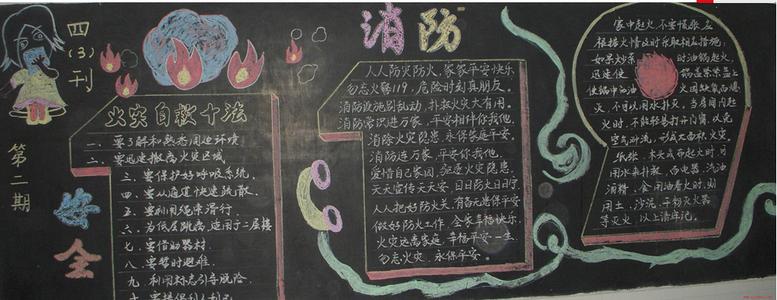 四(3)刊
第二期
安全
消防
火灾自救十法
一、要了解和熟悉周边环境
二、要迅速撤离火灾区域
三、要保护好呼吸系统,
四、要从通道快速疏散,
五、要利用绳索滑行,
六、为低层跳离,适用于二层楼
七、要借助器材.
八、要暂时避难,
九、利用标志引导脱险,
十、要
人人防火防火,家家平安快乐
勿忘火警119,危险时刻真朋友。
消防设施别乱动,扑救火灾大有用。
消防常识进万家,平安相伴你我他,
消除火灾隐患,永保家庭平安,
消防进万家,平安你我他,
爱惜自己家园,驱逐火灾隐患,
天天宣传天天安,日日防火日日宁,
人人把好防火关,
做好防火工作,全家幸福快乐,
火灾远离家庭,幸福平安一生,
勿忘火灾,永保平安。
家中起火不要慌张,应
根据火情及时采取相应措施:
如果炒菜时油锅起火,
迅速使锅盖
使锅中油火因缺氧而熄
灭,不可以用水扑灭,当房间内起
火时,不能轻易打开门窗,以免
空气对流,形成大面积火灾,
纸张、木头或布起火时可
用水来扑救,而电器、汽油
酒精、食用油着火时,则
用土、沙泥、干粉灭火器
等灭火,以上请牢记。